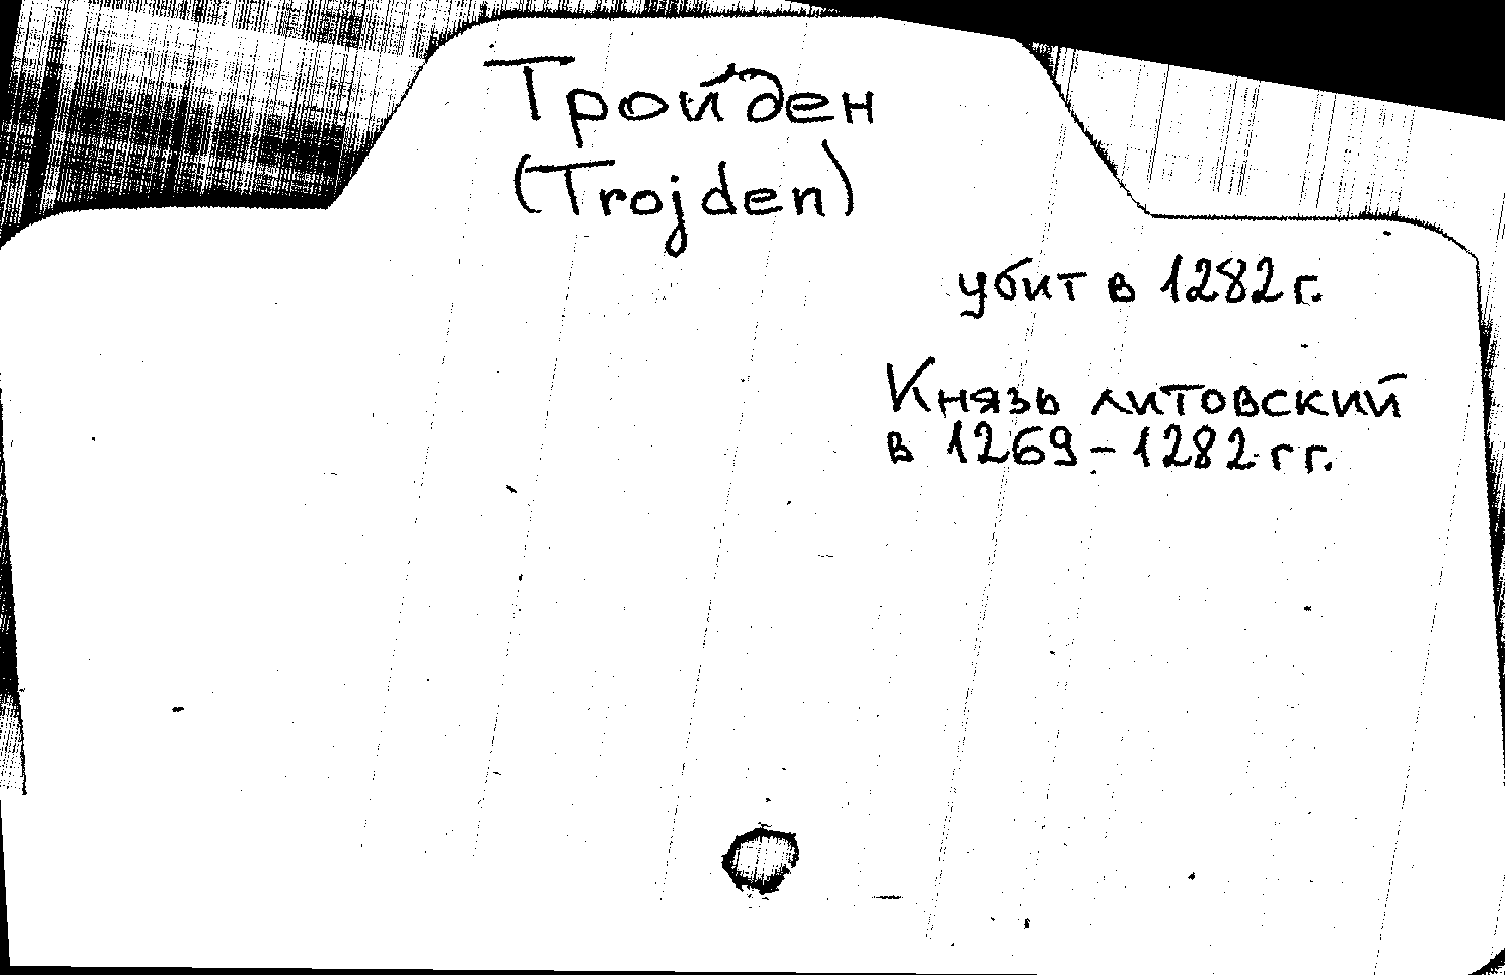 Тройден
(Trojden)
убит в 1282 г.
Князь литовский
в 1269-1282 гг.